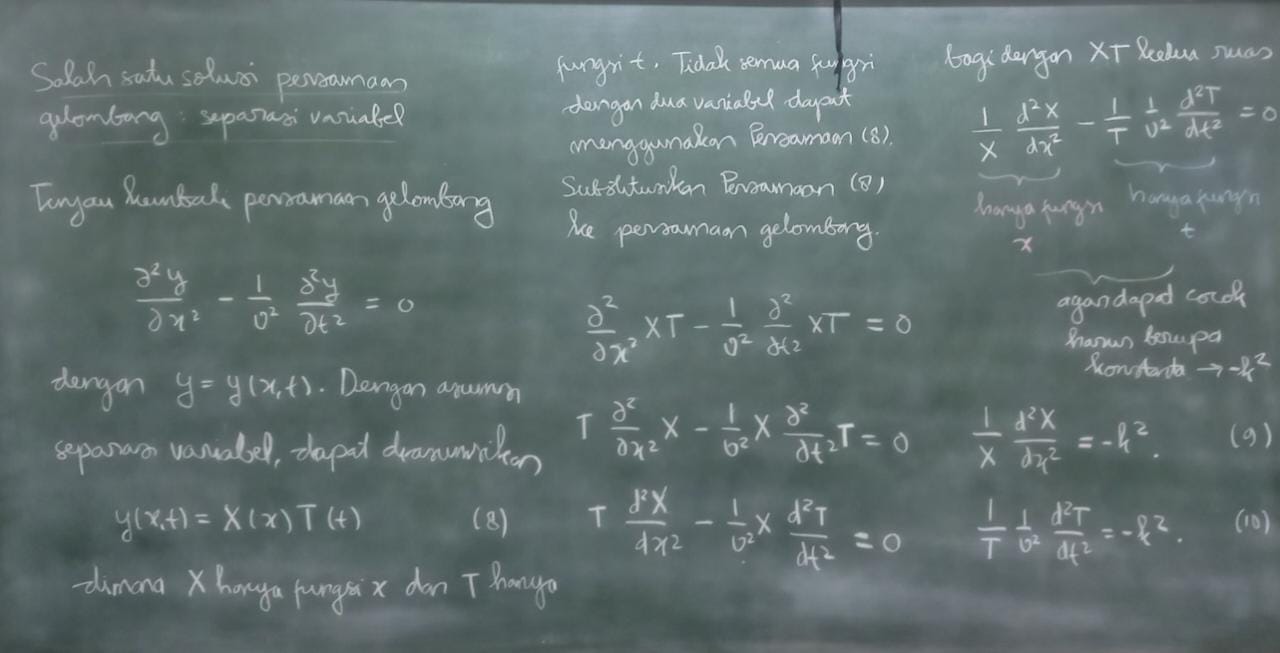 Salah satu solusi persamaan
gelombang : separasi variabel
Tinjau kembali persamaan gelombang
∂²y/∂x² - 1/v² ∂²y/∂t² = 0
dengan y = y(x,t). Dengan asumsi
separasi variabel, dapat diasumsikan
y(x,t) = X(x)T(t) (8)
dimana X hanya fungsi x dan T hanya
fungsi t. Tidak semua fungsi
dengan dua variabel dapat
menggunakan Persamaan (8).
Substitusikan Persamaan (8)
ke persamaan gelombang.
∂²/∂x² XT - 1/v² ∂²/∂t² XT = 0
T ∂²/∂x² X - 1/v² X ∂²/∂t² T = 0
T d²X/dx² - 1/v² X d²T/dt² = 0
bagi dengan XT kedua ruas
1/X d²X/dx² - 1/T 1/v² d²T/dt² = 0
hanya fungsi x
hanya fungsi t
agar dapat cocok
harus berupa
konstanta → -k²
1/X d²X/dx² = -k². (9)
1/T 1/v² d²T/dt² = -k². (10)